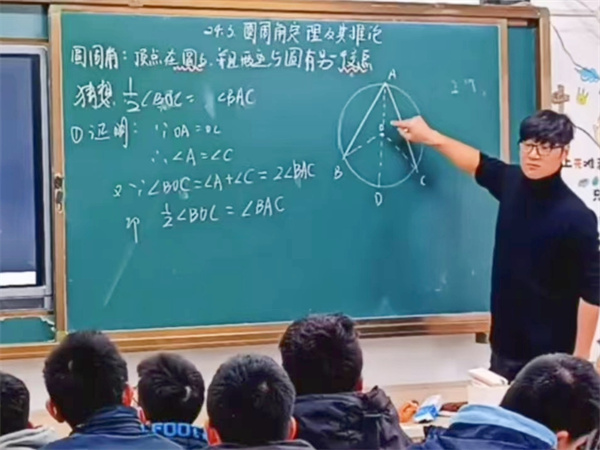 24.3 圆周角定理及其推论
圆周角：顶点在圆上，并且两边与圆有另一交点
猜想 1/2∠BOC = ∠BAC
①证明：∵OA=OC
∴∠A=∠C
又∵∠BOC=∠A+∠C=2∠BAC
即 1/2∠BOC=∠BAC
A
B
C
D
FOOTB